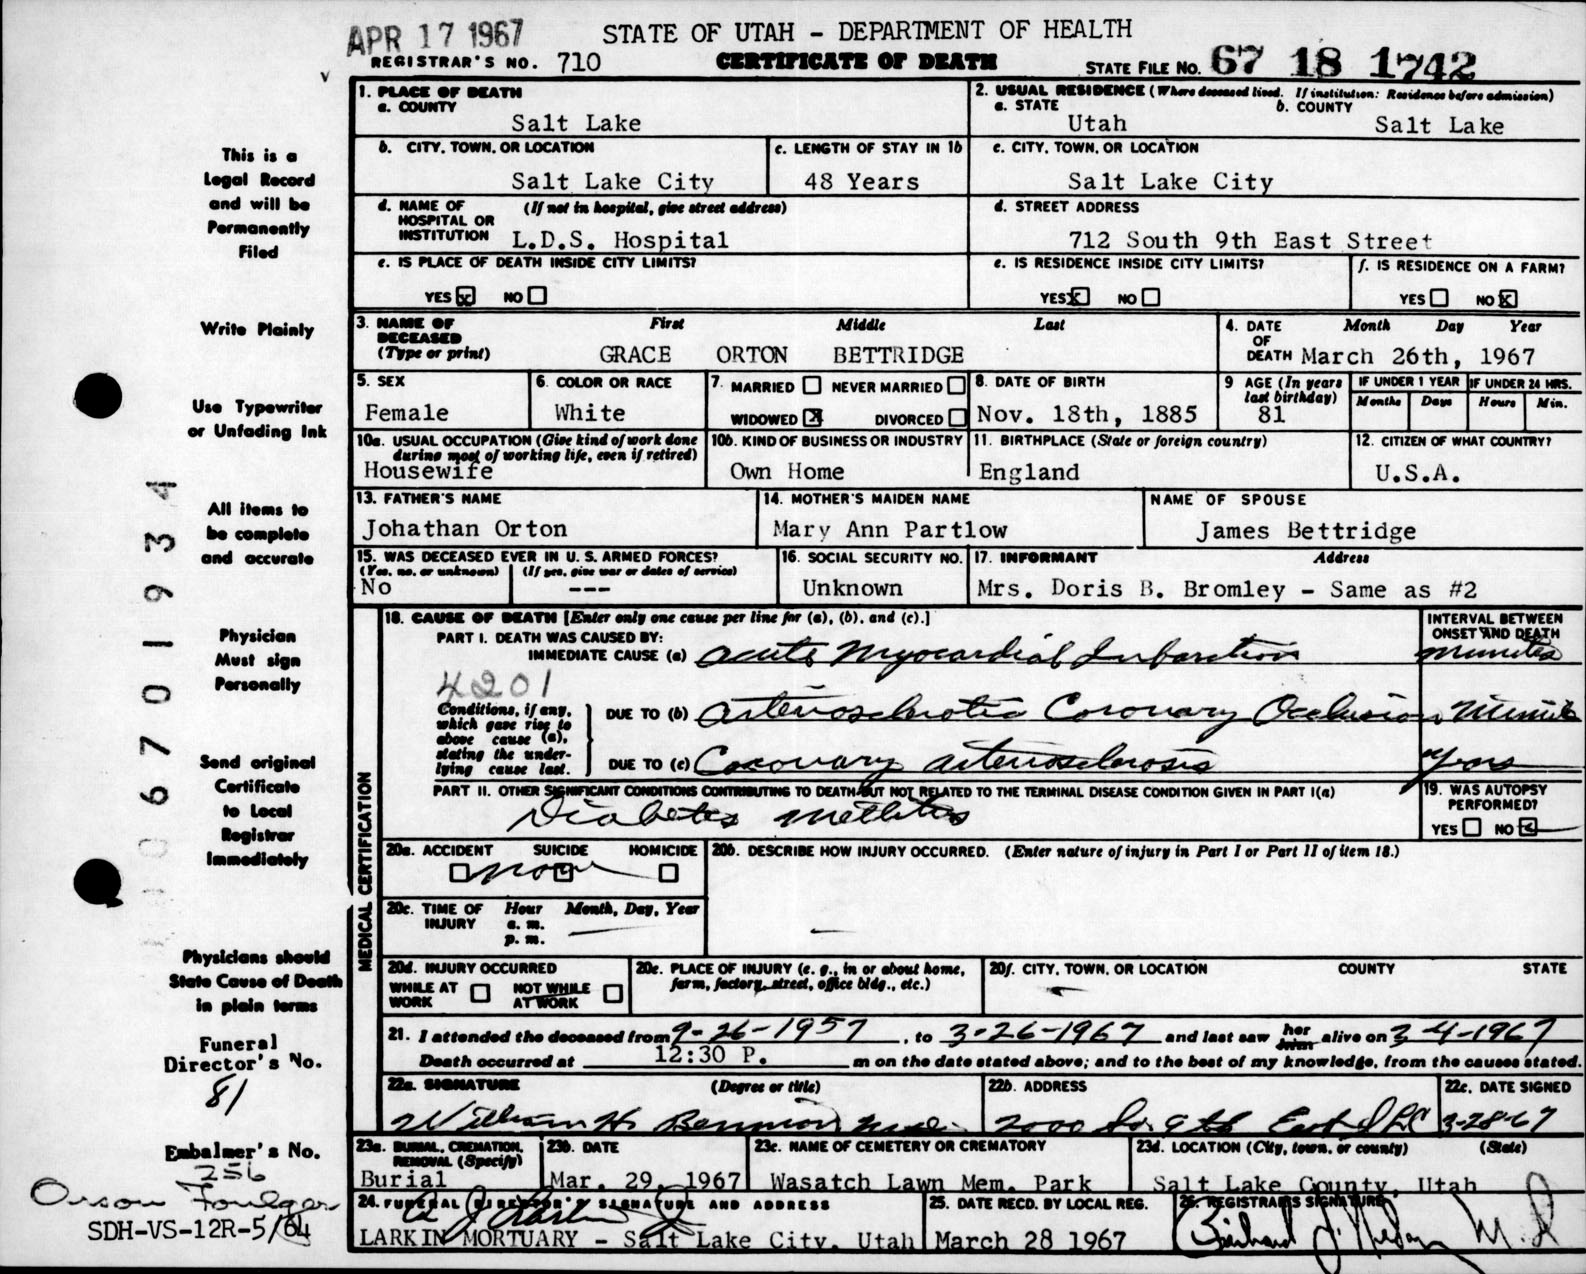 APR 17 1967
STATE OF UTAH - DEPARTMENT OF HEALTH
REGISTRAR'S NO. 710
CERTIFICATE OF DEATH
STATE FILE NO. 67 18 1742
v
This is a
Legal Record
and will be
Permanently
Filed
Write Plainly
Use Typewriter
or Unfading Ink
All items to
be complete
and accurate
Physician
Must sign
Personally
Send original
Certificate
to Local
Registrar
Immediately
Physicians should
State Cause of Death
in plain terms
Funeral
Director's No.
81
Embalmer's No.
256
Orson Foulger
SDH-VS-12R-5/64
6701934
1. PLACE OF DEATH
a. COUNTY
Salt Lake
2. USUAL RESIDENCE (Where deceased lived. If institution: Residence before admission)
a. STATE
Utah
b. COUNTY
Salt Lake
b. CITY, TOWN, OR LOCATION
Salt Lake City
c. LENGTH OF STAY IN 1b
48 Years
c. CITY, TOWN, OR LOCATION
Salt Lake City
d. NAME OF (If not in hospital, give street address)
HOSPITAL OR
INSTITUTION L.D.S. Hospital
d. STREET ADDRESS
712 South 9th East Street
e. IS PLACE OF DEATH INSIDE CITY LIMITS?
YES x NO
e. IS RESIDENCE INSIDE CITY LIMITS?
YES x NO
f. IS RESIDENCE ON A FARM?
YES NO x
3. NAME OF First Middle Last
DECEASED
(Type or print) GRACE ORTON BETTRIDGE
4. DATE Month Day Year
OF
DEATH March 26th, 1967
5. SEX
Female
6. COLOR OR RACE
White
7. MARRIED NEVER MARRIED
WIDOWED X DIVORCED
8. DATE OF BIRTH
Nov. 18th, 1885
9 AGE (In years
last birthday)
81
IF UNDER 1 YEAR
Months Days
IF UNDER 24 HRS.
Hours Min.
10a. USUAL OCCUPATION (Give kind of work done
during most of working life, even if retired)
Housewife
10b. KIND OF BUSINESS OR INDUSTRY
Own Home
11. BIRTHPLACE (State or foreign country)
England
12. CITIZEN OF WHAT COUNTRY?
U.S.A.
13. FATHER'S NAME
Johathan Orton
14. MOTHER'S MAIDEN NAME
Mary Ann Partlow
NAME OF SPOUSE
James Bettridge
15. WAS DECEASED EVER IN U. S. ARMED FORCES?
(Yes, no, or unknown) (If yes, give war or dates of service)
No ---
16. SOCIAL SECURITY NO.
Unknown
17. INFORMANT Address
Mrs. Doris B. Bromley - Same as #2
MEDICAL CERTIFICATION
18. CAUSE OF DEATH [Enter only one cause per line for (a), (b), and (c).]
INTERVAL BETWEEN
ONSET AND DEATH
PART I. DEATH WAS CAUSED BY:
IMMEDIATE CAUSE (a) Acute Myocardial Infarction minutes
4201
Conditions, if any,
which gave rise to
above cause (a),
stating the under-
lying cause last.
DUE TO (b) Arteriosclerotic Coronary Occlusion Minutes
DUE TO (c) Coronary arteriosclerosis Years
PART II. OTHER SIGNIFICANT CONDITIONS CONTRIBUTING TO DEATH BUT NOT RELATED TO THE TERMINAL DISEASE CONDITION GIVEN IN PART I(a)
Diabetes Mellitus
19. WAS AUTOPSY
PERFORMED?
YES NO
20a. ACCIDENT SUICIDE HOMICIDE
none
20b. DESCRIBE HOW INJURY OCCURRED. (Enter nature of injury in Part I or Part II of item 18.)
20c. TIME OF Hour Month, Day, Year
INJURY a. m.
p. m.
20d. INJURY OCCURRED
WHILE AT NOT WHILE
WORK AT WORK
20e. PLACE OF INJURY (e. g., in or about home,
farm, factory, street, office bldg., etc.)
20f. CITY, TOWN, OR LOCATION COUNTY STATE
21. I attended the deceased from 9-26-1957, to 3-26-1967 and last saw her him alive on 3-4-1967
Death occurred at 12:30 P. m on the date stated above; and to the best of my knowledge, from the causes stated.
22a. SIGNATURE (Degree or title)
William H.
22b. ADDRESS
2000 So. 9th East SLC
22c. DATE SIGNED
3-28-67
23a. BURIAL, CREMATION,
REMOVAL (Specify)
Burial
23b. DATE
Mar. 29, 1967
23c. NAME OF CEMETERY OR CREMATORY
Wasatch Lawn Mem. Park
23d. LOCATION (City, town, or county) (State)
Salt Lake County, Utah
24. FUNERAL DIRECTOR'S SIGNATURE AND ADDRESS
LARKIN MORTUARY - Salt Lake City, Utah
25. DATE RECD. BY LOCAL REG.
March 28 1967
26. REGISTRAR'S SIGNATURE